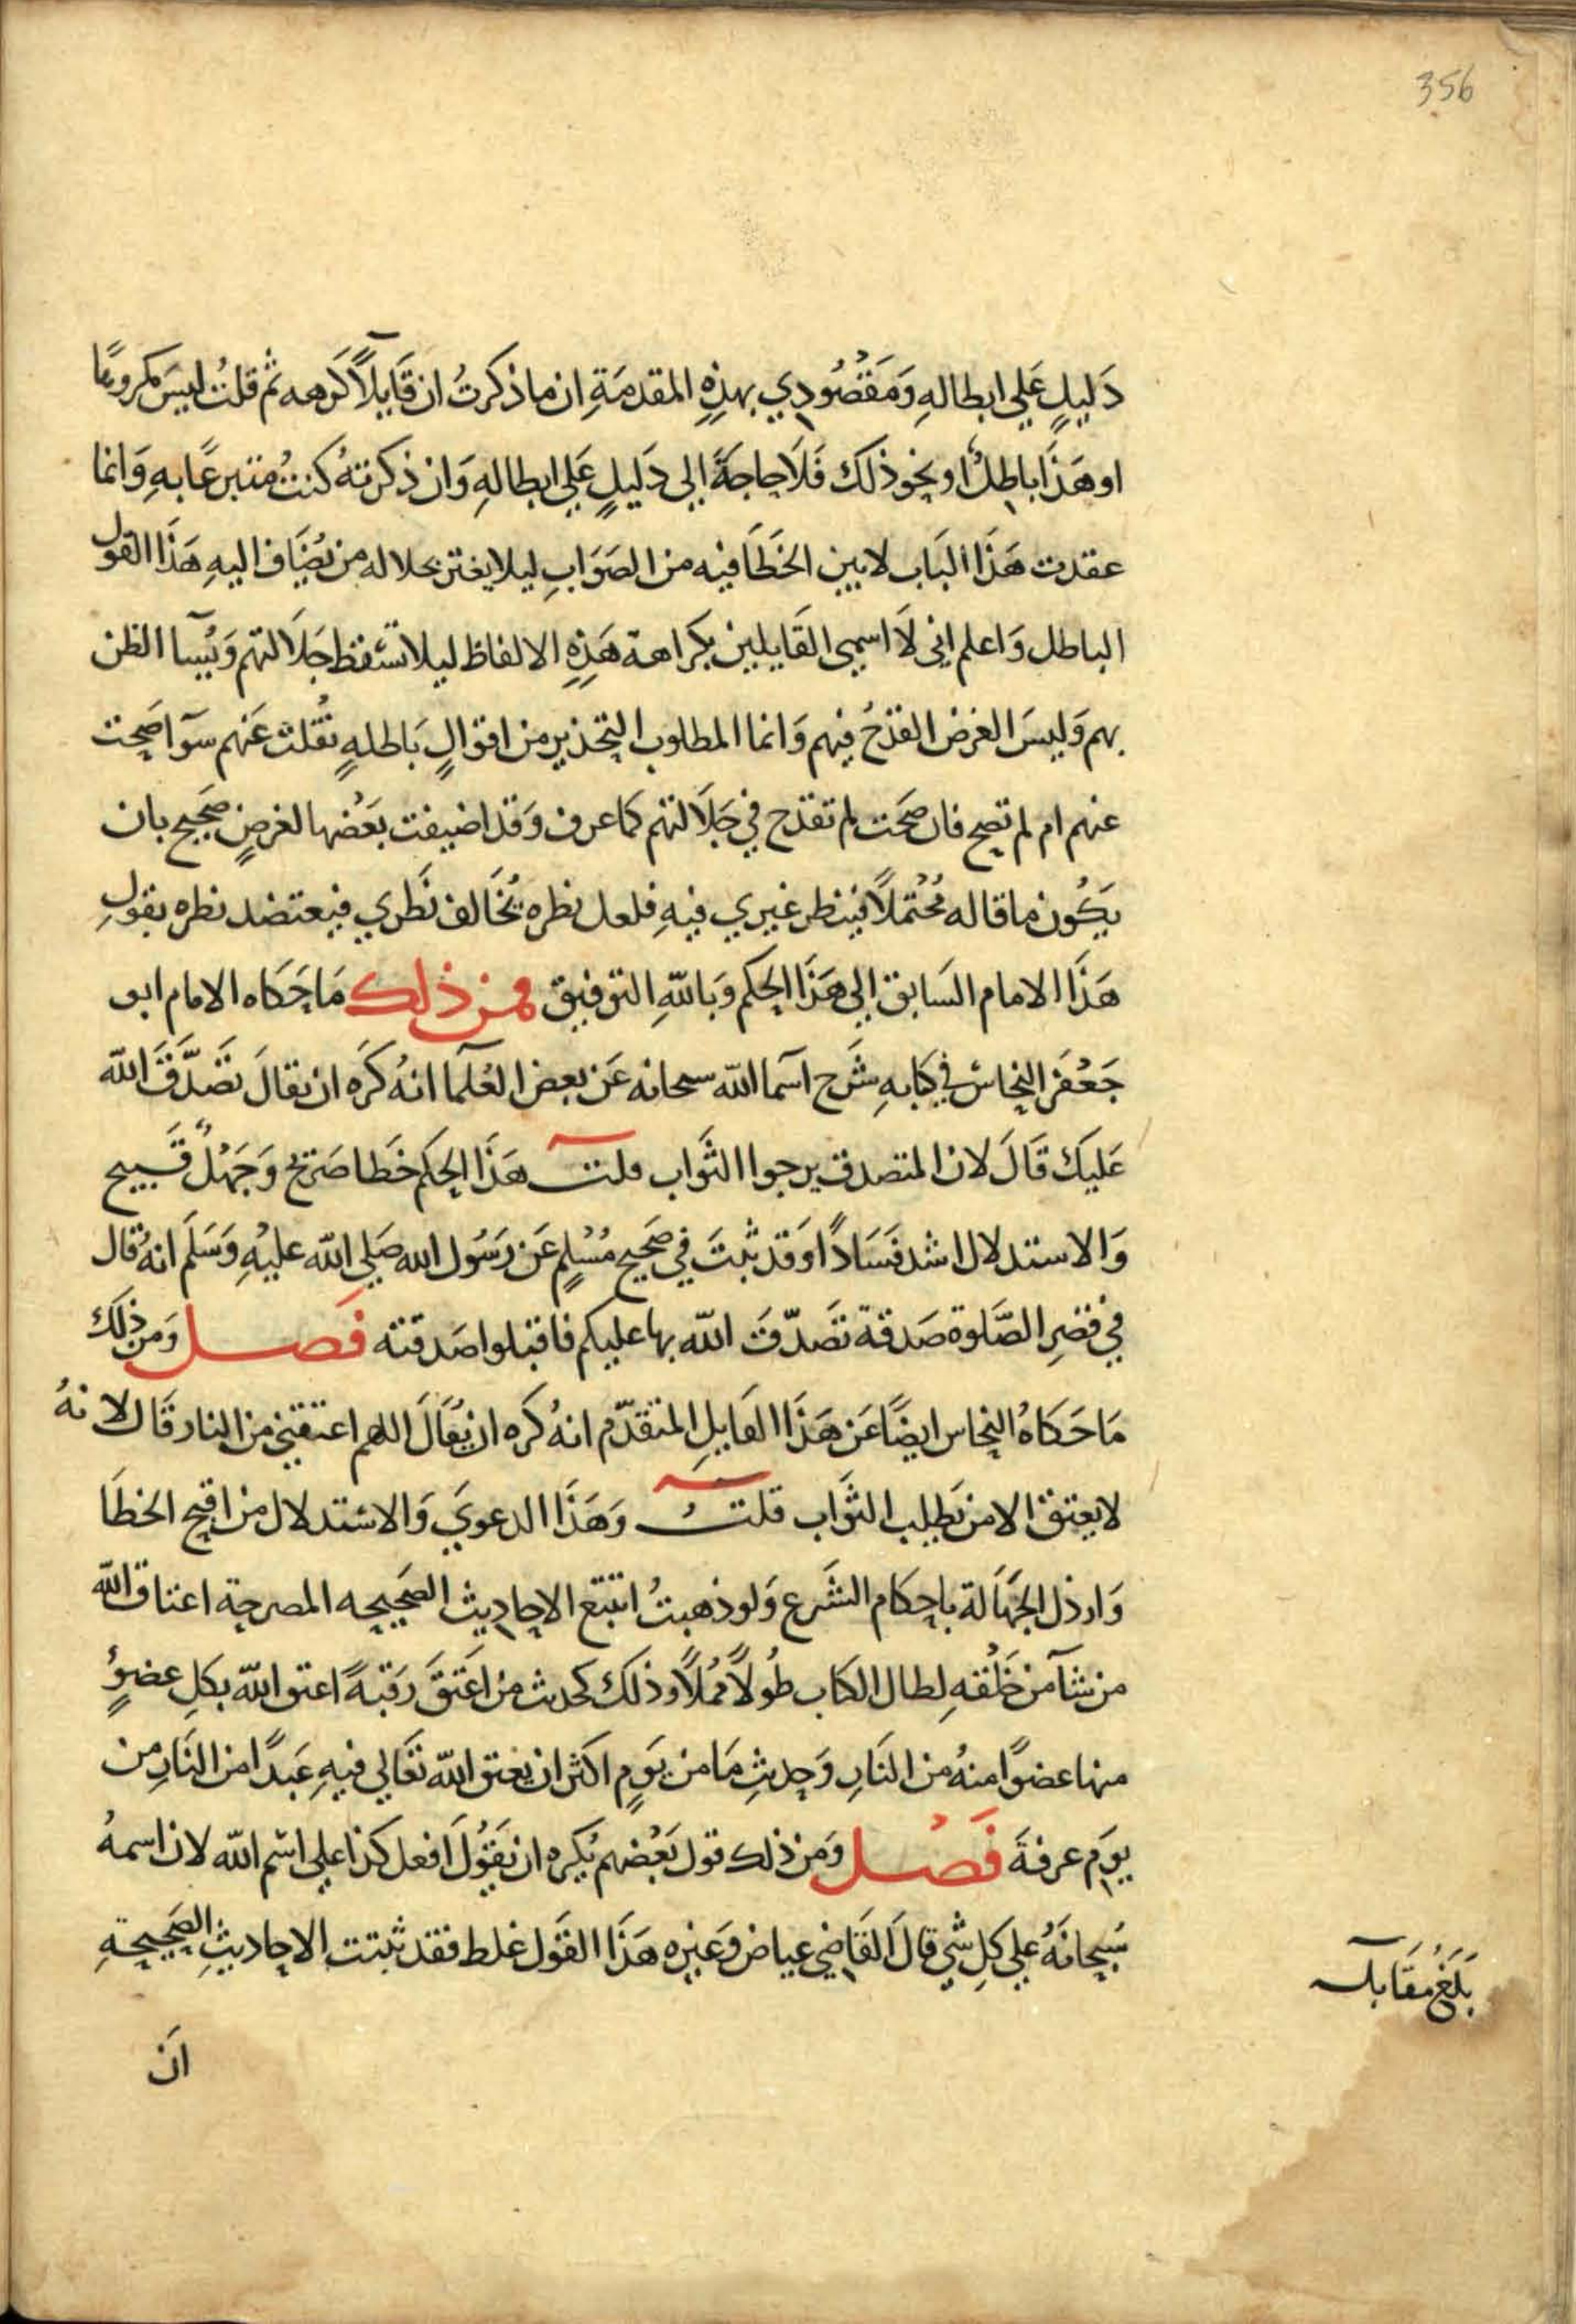 356
دَليلٍ عَلي ابطالهِ وَمَقْصُودي بهذِهِ المقدمَةِ ان ما ذكرتُ ان قَايلاً كَرهه ثم قلتُ ليسَ مكروهًا
او هَذَا باطِلٌ او نحو ذلك فَلَا حاجةَ الى دَليلٍ عَلي ابطالهِ وَان ذكرتهُ كنتُ متبرعًا بهِ وَانما
عقدت هَذَا البَاب لابين الخَطَا فيه من الصَوَابِ ليلا يغتر بجلاله من يُضَاف اليهِ هَذَا القول
الباطل وَاعلم انى لَا اسمي القَايلين بكراهة هَذِهِ الالفاظ ليلا تسْقط جَلَالتهم وَيُسآ الظن
بهم وَليسَ الغرض القدْحُ فيهم وَانما المطلوب التحذير من اقوالٍ بَاطلهٍ نُقلت عَنهم سوآ صَحت
عنهم ام لم تصح فان صَحَت لم تقدح في جَلَالتهم كما عرف وَقد اضيفت بَعْضها لغرضٍ صَحيح بان
يَكُون ما قاله مُحْتملاً فينظر غيري فيهِ فلعل نظره يُخَالف نَظري فيعتضد نظره بقولِ
هَذَا الامام السَابق الي هَذَا الحكم وَبالله التوفيق فمن ذلك مَا حَكَاه الامام ابو
جَعْفَر النحاسْ في كتابهِ شَرح آسما الله سبحانه عَن بعض العُلَمآ انهُ كَرَه ان يقالَ تَصَدَّقَ الله
عَليكَ قَالَ لان المتصدق يرجوا الثَواب قلت هَذَا الحكم خَطا صَريح وَجَهْلٌ قَبيح
وَالاستدلال اشد فَسَادًا وَقد ثبتَ في صَحيح مُسْلمٍ عَن رَسُول الله صَلي الله عليْهِ وَسَلَم انهُ قال
في قصْرِ الصَّلوة صَدقة تَصَدّقَ الله بها عليكم فاقبلوا صَدقته فَصل وَمن ذلكَ
مَا حَكَاهُ النحاس ايضًا عَن هَذَا القايلِ المتقدّم انهُ كره ان يُقالَ اللهم اعتقني من النار قَال لانهُ
لا يعتق الا من يَطلب الثَواب قلتُ وَهَذَا الدعوَي وَالاسْتدلال من اقبح الخطَا
وَارذل الجَهَالة باحكام الشَرع وَلو ذهبتُ اتتبع الاحاديث الصَحيحه المصرحة اعتاق الله
من شآ من خَلْقهِ لطال الكتاب طُولاً مُملاً وذلك كحديث من اعتَقَ رَقبَةً اعتق الله بكلِ عضوٍ
منها عضوًا منهُ من النَارِ وَحديثِ مَا من يَومٍ اكثر ان يعتق الله تَعَالي فيهِ عَبدًا من النَارِ من
يوم عرفةَ فَصْل وَمن ذلك قول بَعْضهم يُكره ان يَقُولَ افعل كذا علي اسْم الله لان اسمهُ
سُبحانَهُ علي كلِ شي قالَ القَاضي عياض وَغيره هَذَا القَول غلط فقد ثبتت الاحاديثِ الصَحيحةِ
بَلَغَ مُقَابلة
انَ